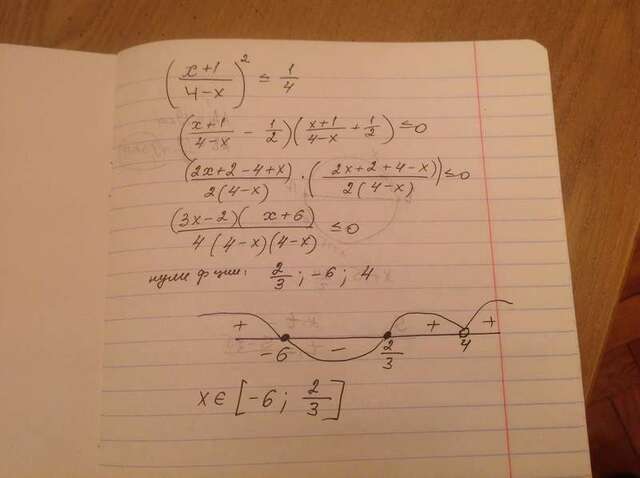 (x+1/4-x)² ≤ 1/4
(x+1/4-x - 1/2)(x+1/4-x + 1/2) ≤ 0
(2x+2-4+x)/2(4-x) · (2x+2+4-x)/2(4-x) ≤ 0
(3x-2)(x+6)/4(4-x)(4-x) ≤ 0
нули ф ции: 2/3; -6; 4
+ - + +
-6 2/3 4
x ∈ [-6; 2/3]